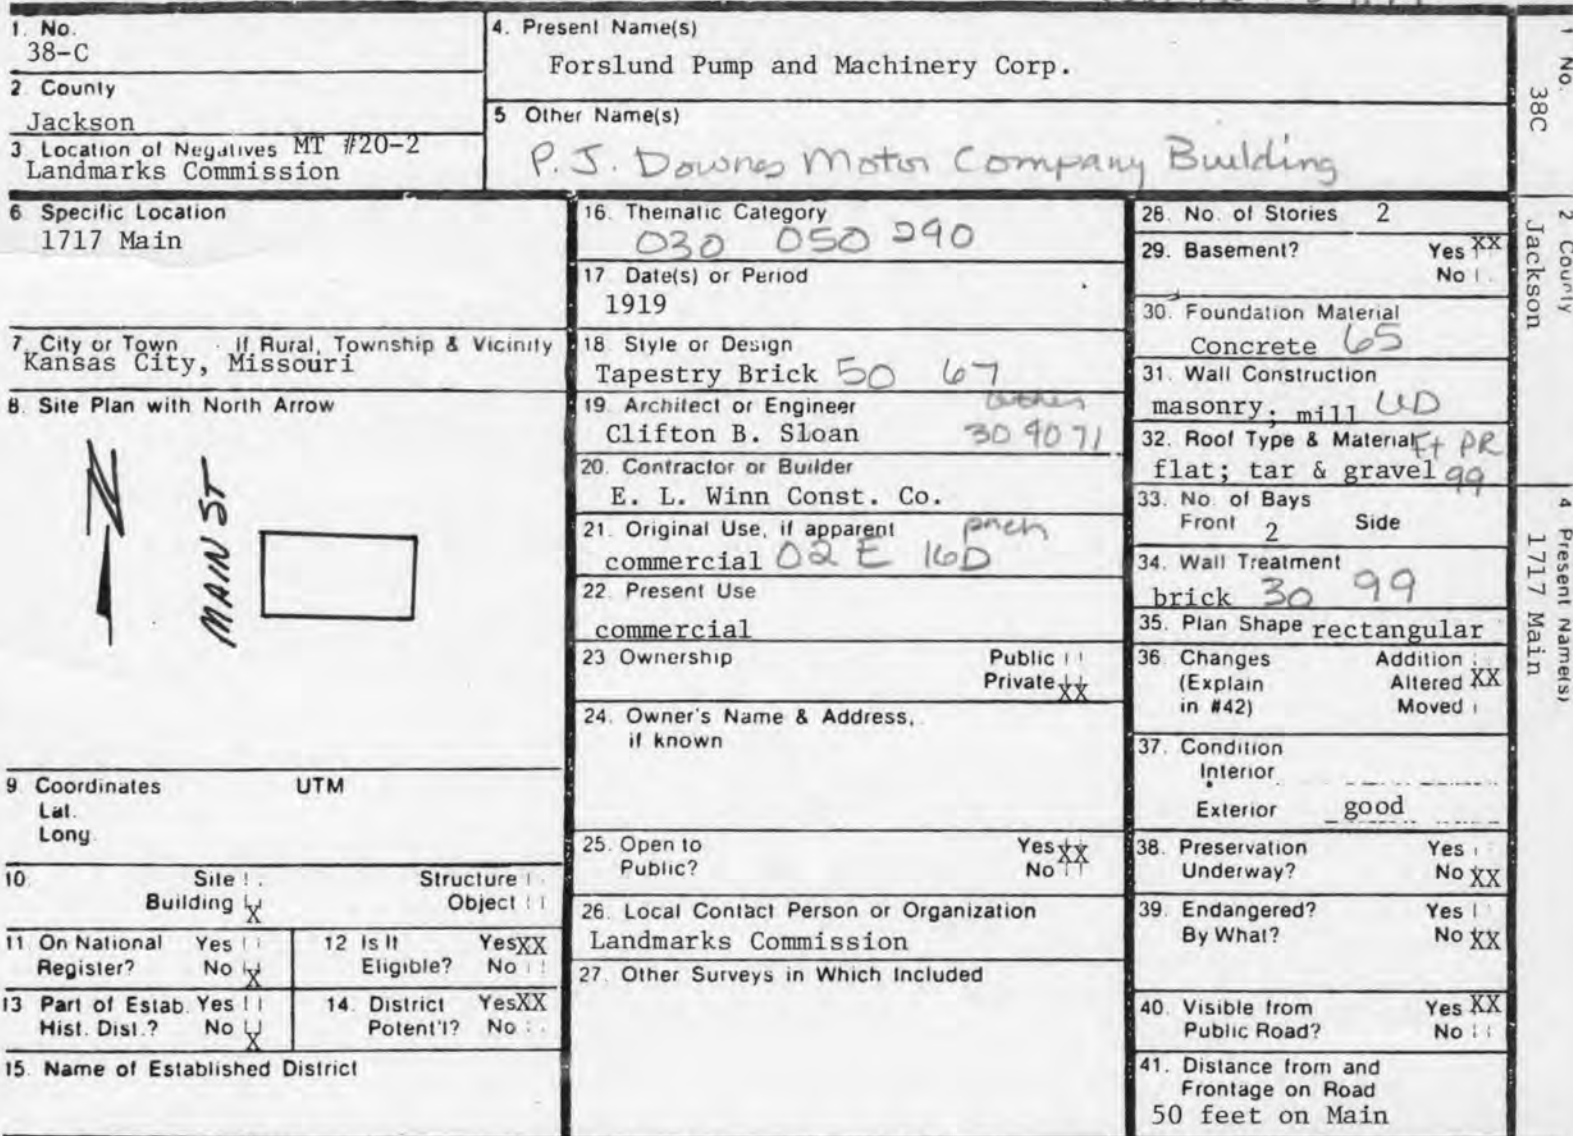 1. No.
38-C
2. County
Jackson
3 Location of Negatives MT #20-2
Landmarks Commission
4. Present Name(s)
Forslund Pump and Machinery Corp.
5 Other Name(s)
P.J. Downes Motor Company Building
6 Specific Location
1717 Main
7. City or Town If Rural, Township & Vicinity
Kansas City, Missouri
8. Site Plan with North Arrow
N
MAIN ST
9 Coordinates UTM
Lat.
Long.
10. Site Structure
Building X Object
11 On National Yes
Register? No X
12 Is It Yes XX
Eligible? No
13 Part of Estab. Yes
Hist. Dist.? No X
14. District Yes XX
Potent'l? No
15. Name of Established District
16. Thematic Category
030 050 290
17 Date(s) or Period
1919
18 Style or Design
Tapestry Brick 50 67
19. Architect or Engineer
Clifton B. Sloan 30 40 71
20. Contractor or Builder
E. L. Winn Const. Co.
21. Original Use, if apparent
commercial 02E 16D
22. Present Use
commercial
23 Ownership Public
Private XX
24. Owner's Name & Address,
if known
25. Open to Yes XX
Public? No
26. Local Contact Person or Organization
Landmarks Commission
27. Other Surveys in Which Included
28. No. of Stories 2
29. Basement? Yes XX
No
30. Foundation Material
Concrete 65
31. Wall Construction
masonry; mill UD
32. Roof Type & Material Ft PR
flat; tar & gravel 99
33. No. of Bays
Front 2 Side
34. Wall Treatment
brick 30 99
35. Plan Shape rectangular
36. Changes Addition
(Explain Altered XX
in #42) Moved
37. Condition
Interior
Exterior good
38. Preservation Yes
Underway? No XX
39. Endangered? Yes
By What? No XX
40. Visible from Yes XX
Public Road? No
41. Distance from and
Frontage on Road
50 feet on Main
1 No.
38C
2 County
Jackson
4 Present Name(s)
1717 Main